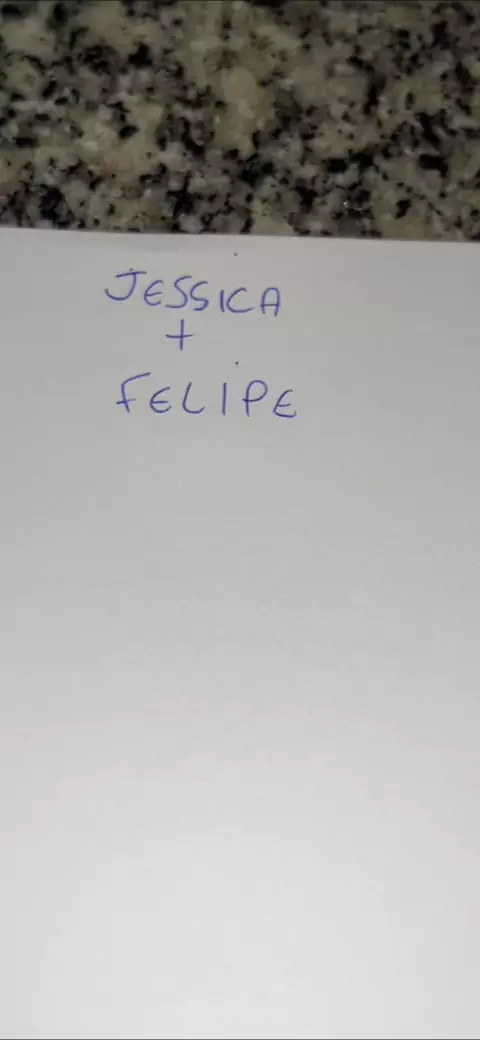 JESSICA
+
FELIPE